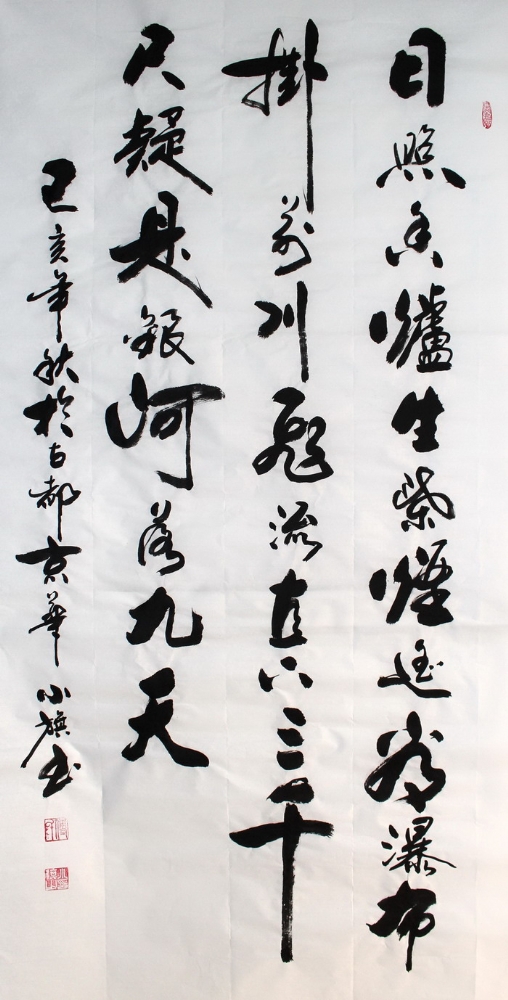 日照香爐生紫煙遥看瀑布
掛前川飛流直下三千
尺疑是銀河落九天
己亥年秋於古都京華小旗书